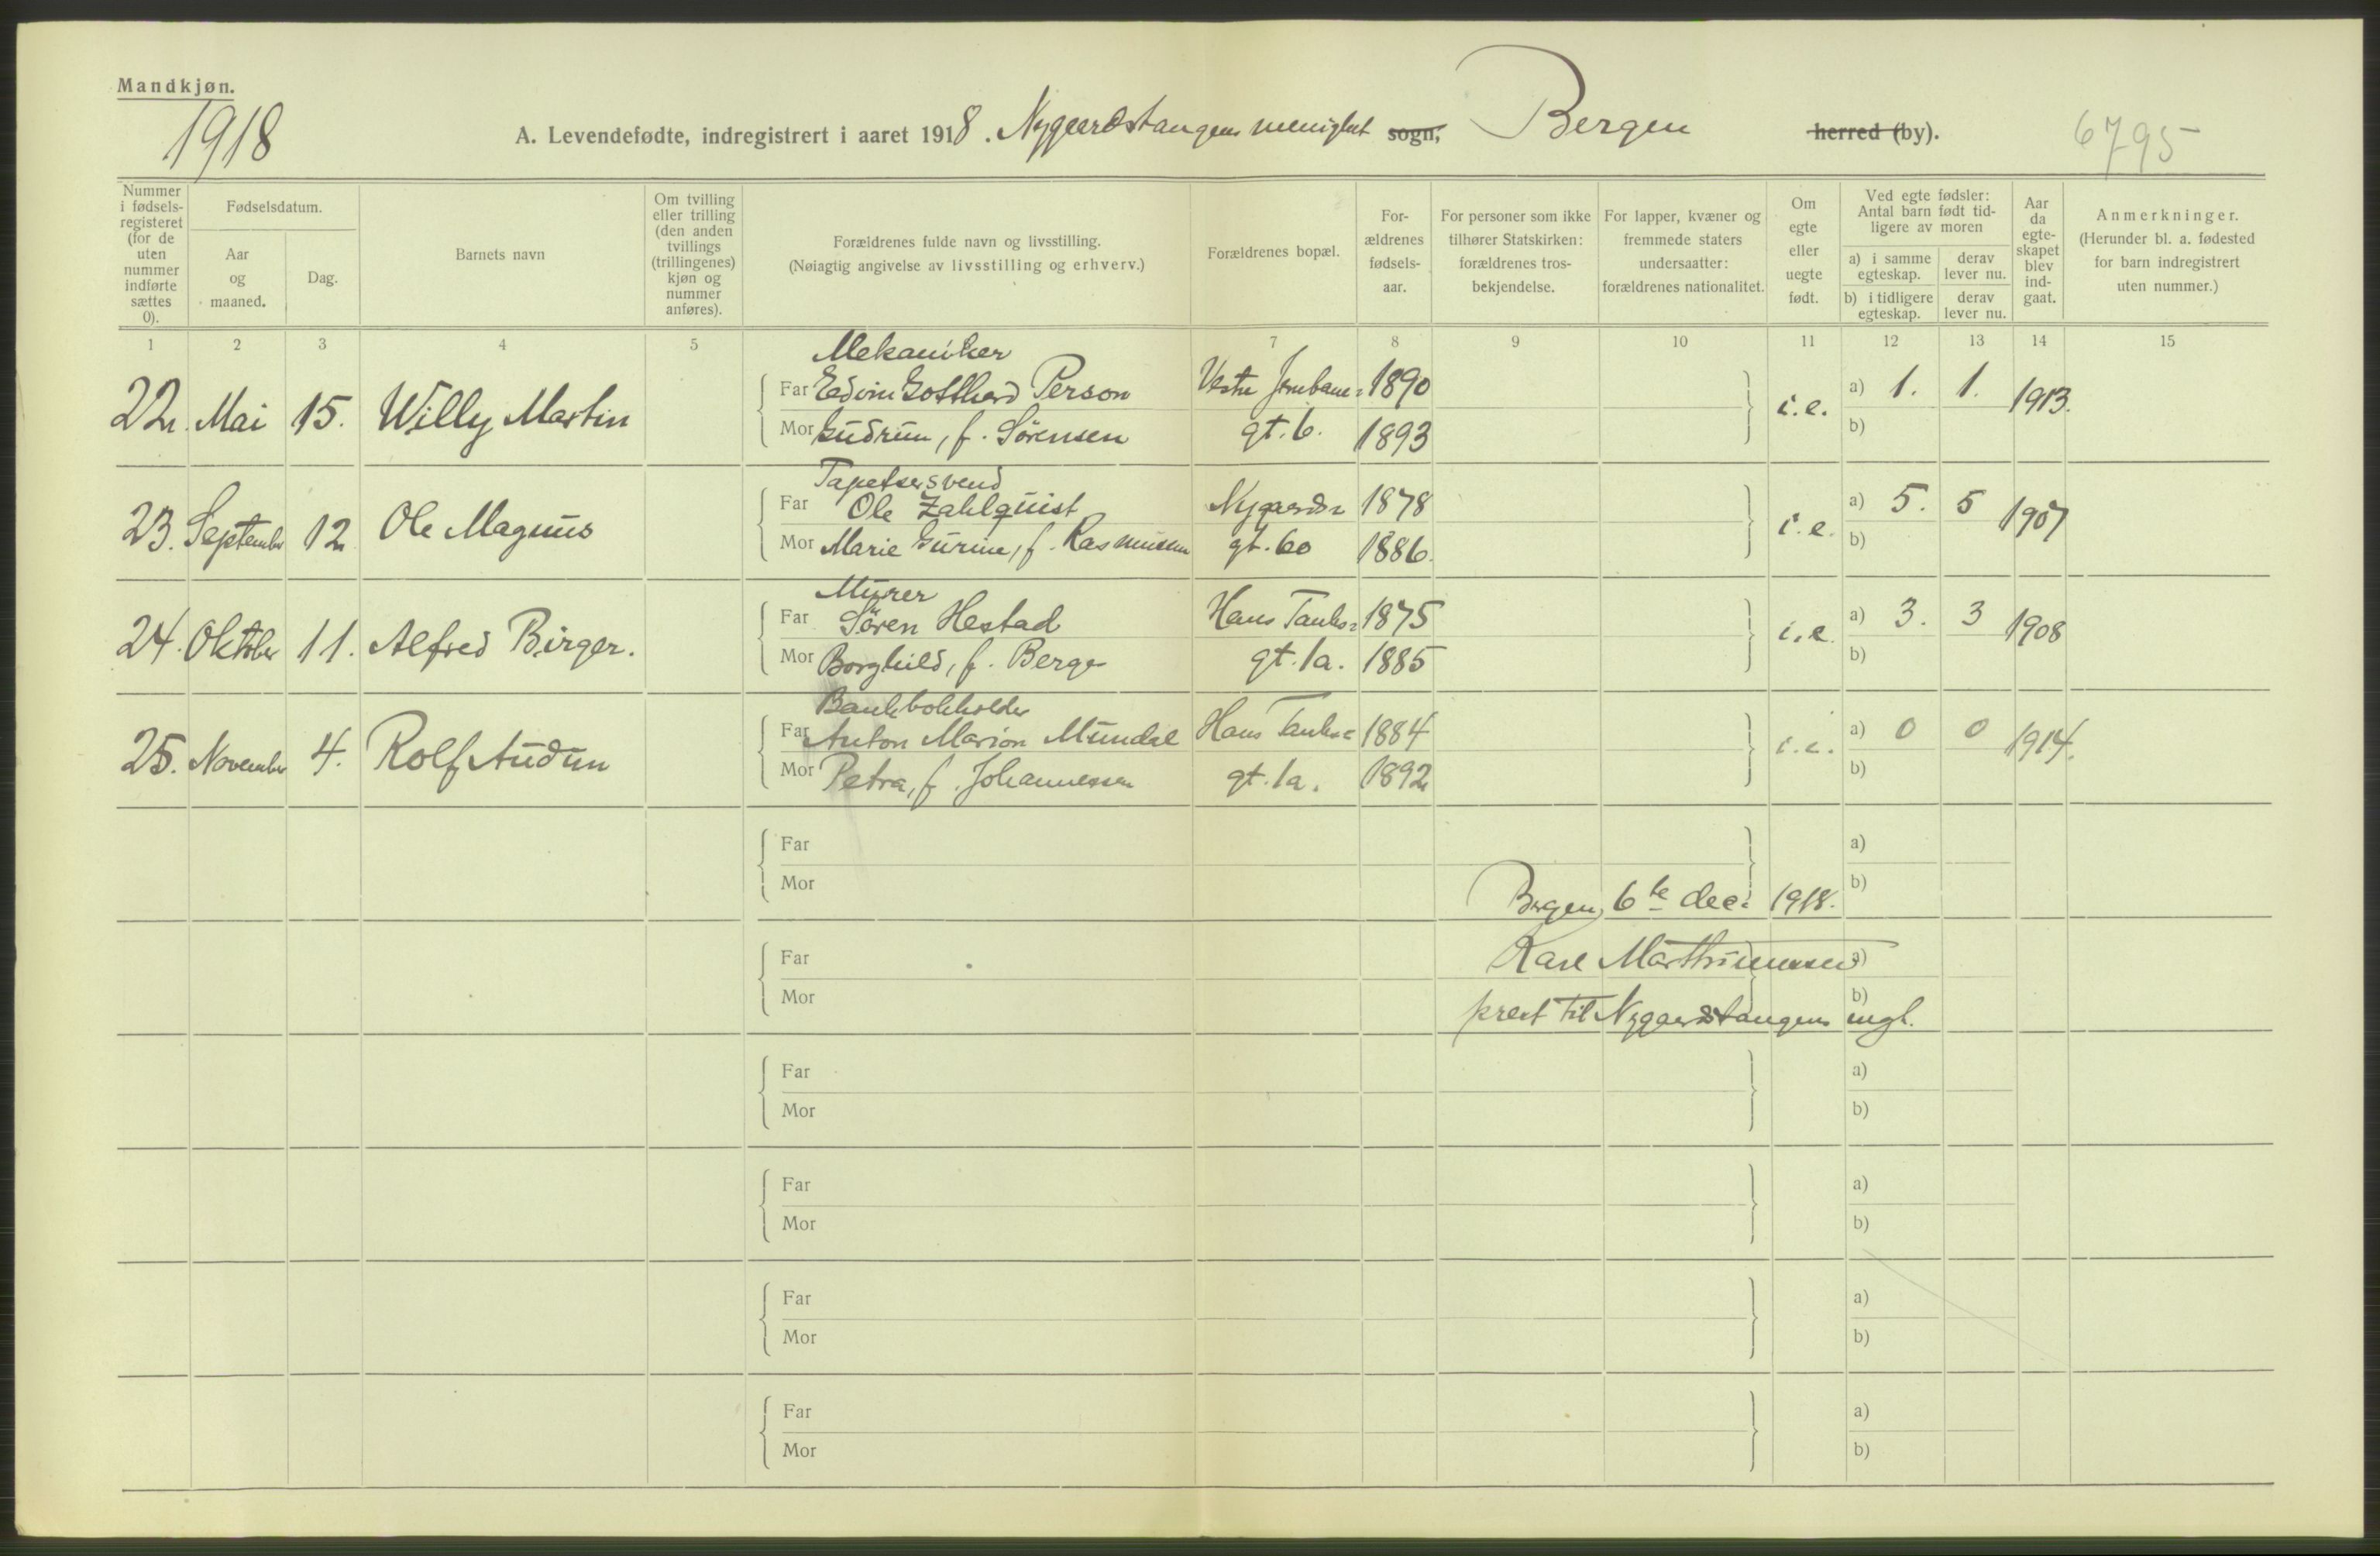 Mandkjøn.
1918
A. Levendefødte, indregistrert i aaret 1918. Nygaardstangens menighet sogn, Bergen herred (by).
6795
Nummer i fødsels-registeret (for de uten nummer indførte sættes 0).
Fødselsdatum.
Aar og maaned.
Dag.
Barnets navn
Om tvilling eller trilling (den anden tvillings (trillingenes) kjøn og nummer anføres).
Forældrenes fulde navn og livsstilling.
(Nøiagtig angivelse av livsstilling og erhverv.)
Forældrenes bopæl.
For-ældrenes fødsels-aar.
For personer som ikke tilhører Statskirken: forældrenes tros-bekjendelse.
For lapper, kvæner og fremmede staters undersaatter: forældrenes nationalitet.
Om egte eller uegte født.
Ved egte fødsler: Antal barn født tid-ligere av moren
a) i samme egteskap.
derav lever nu.
b) i tidligere egteskap.
derav lever nu.
Aar da egte-skapet blev ind-gaat.
Anmerkninger.
(Herunder bl. a. fødested for barn indregistrert uten nummer.)
1 2 3 4 5 7 8 9 10 11 12 13 14 15
Mekaniker
22. Mai 15. Willy Martin Far Edvin Gotthard Person Vestre Jernbane= 1890 i.e. a) 1. 1. 1913.
Mor Gudrun, f. Sörensen gt. 6. 1893 b)
Tapetsersvend
23. September 12 Ole Magnus Far Ole Zahlquist Nygaards= 1878 i.e. a) 5. 5 1907
Mor Marie Gurine, f. Rasmussen gt. 60 1886. b)
Murer
24. Oktober 11. Alfred Birger. Far Sören Hestad Hans Tanks= 1875 i.e. a) 3. 3 1908
Mor Borghild, f. Berge gt. 1a. 1885 b)
Bankbokholder
25. November 4. Rolf Audun Far Anton Marion Mundal Hans Tanks= 1884 i.e. a) 0 0 1914.
Mor Petra, f. Johannessen gt. 1a. 1892 b)
Far a)
Mor b)
Bergen, 6te dec: 1918.
Far Karl Marthinussen a)
Mor b)
prest til Nygaardstangens mgh.
Far a)
Mor b)
Far a)
Mor b)
Far a)
Mor b)
Far a)
Mor b)